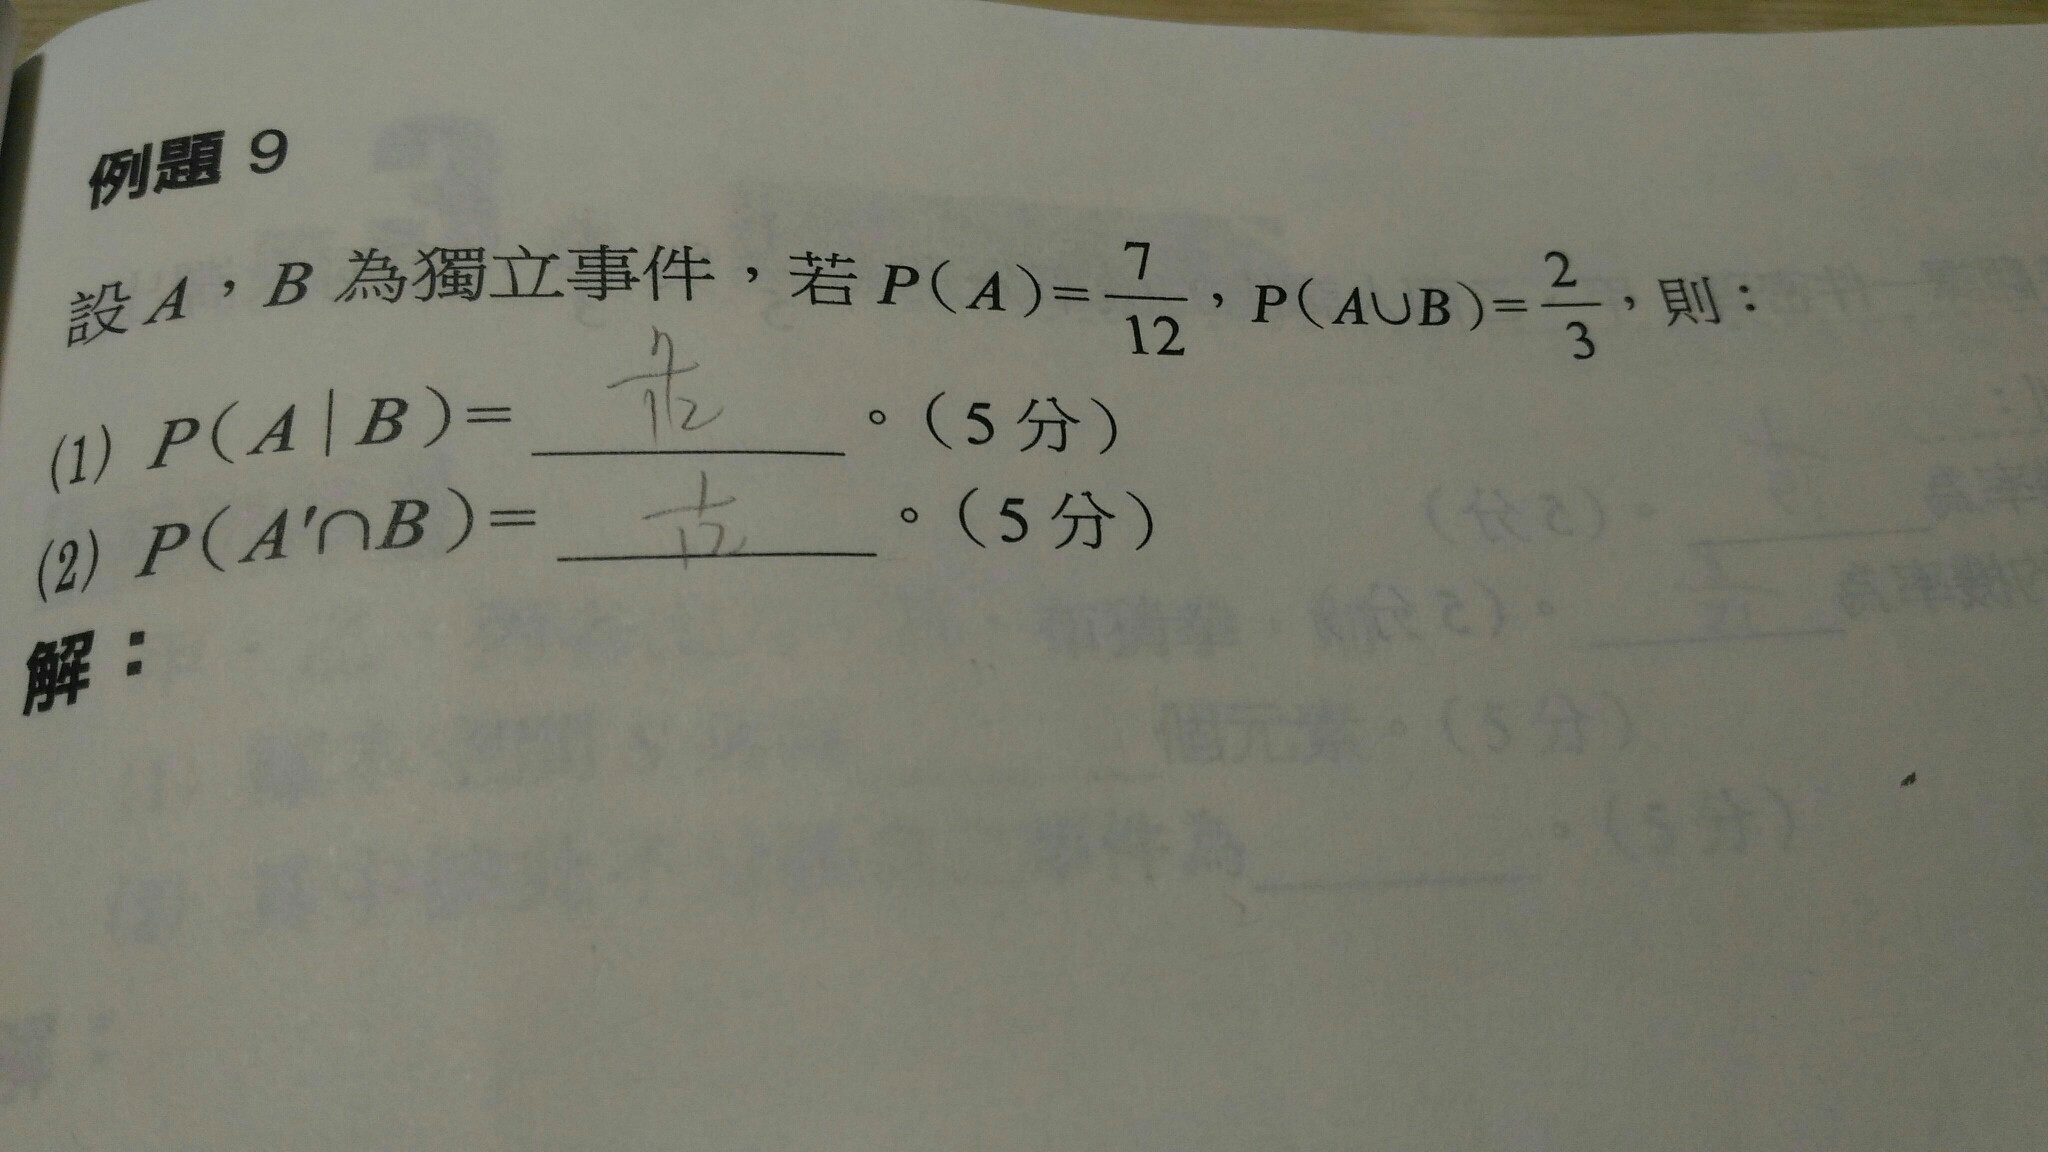 例題 9
設 A，B 為獨立事件，若 P(A)=7/12，P(A∪B)=2/3，則：
(1) P(A|B)= 7/12 。(5 分)
(2) P(A'∩B)= 1/12 。(5 分)
解：